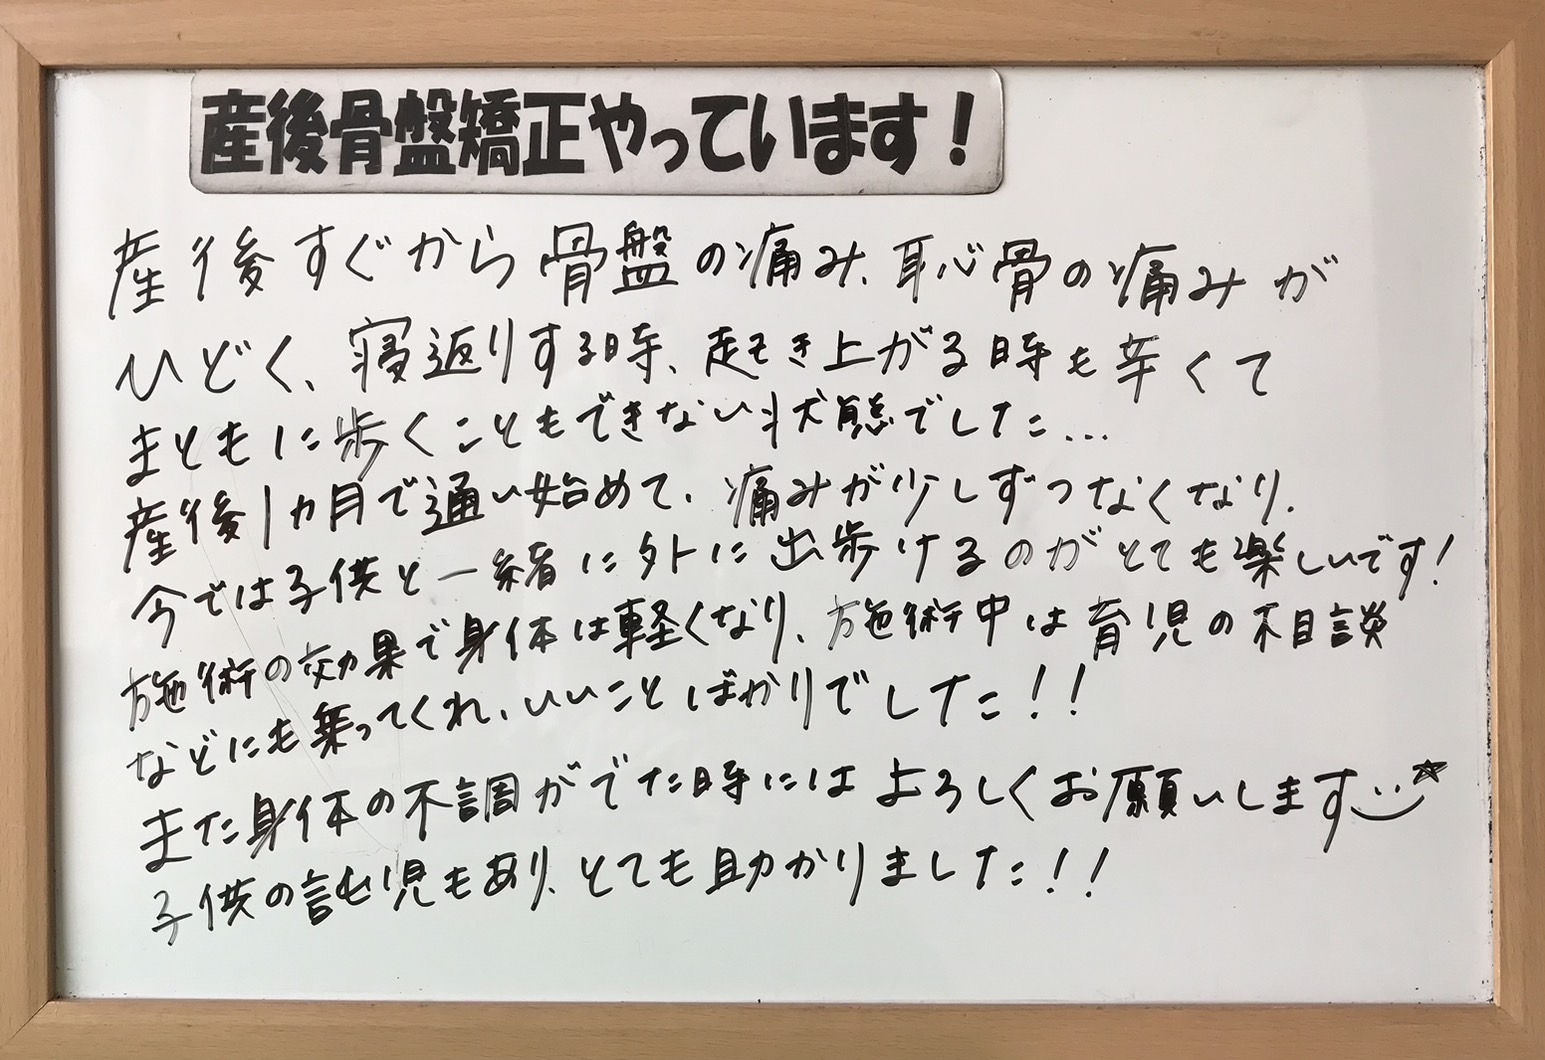 産後骨盤矯正やっています!
産後すぐから骨盤の痛み、恥骨の痛みが
ひどく、寝返りする時、起き上がる時も辛くて
まともに歩くこともできない状態でした…
産後1ヵ月で通い始めて、痛みが少しずつなくなり、
今では子供と一緒に外に出歩けるのがとても楽しいです!
施術の効果で身体は軽くなり、施術中は育児の相談
などにも乗ってくれ、いいことばかりでした!!
また身体の不調がでた時にはよろしくお願いします
子供の託児もあり、とても助かりました!!